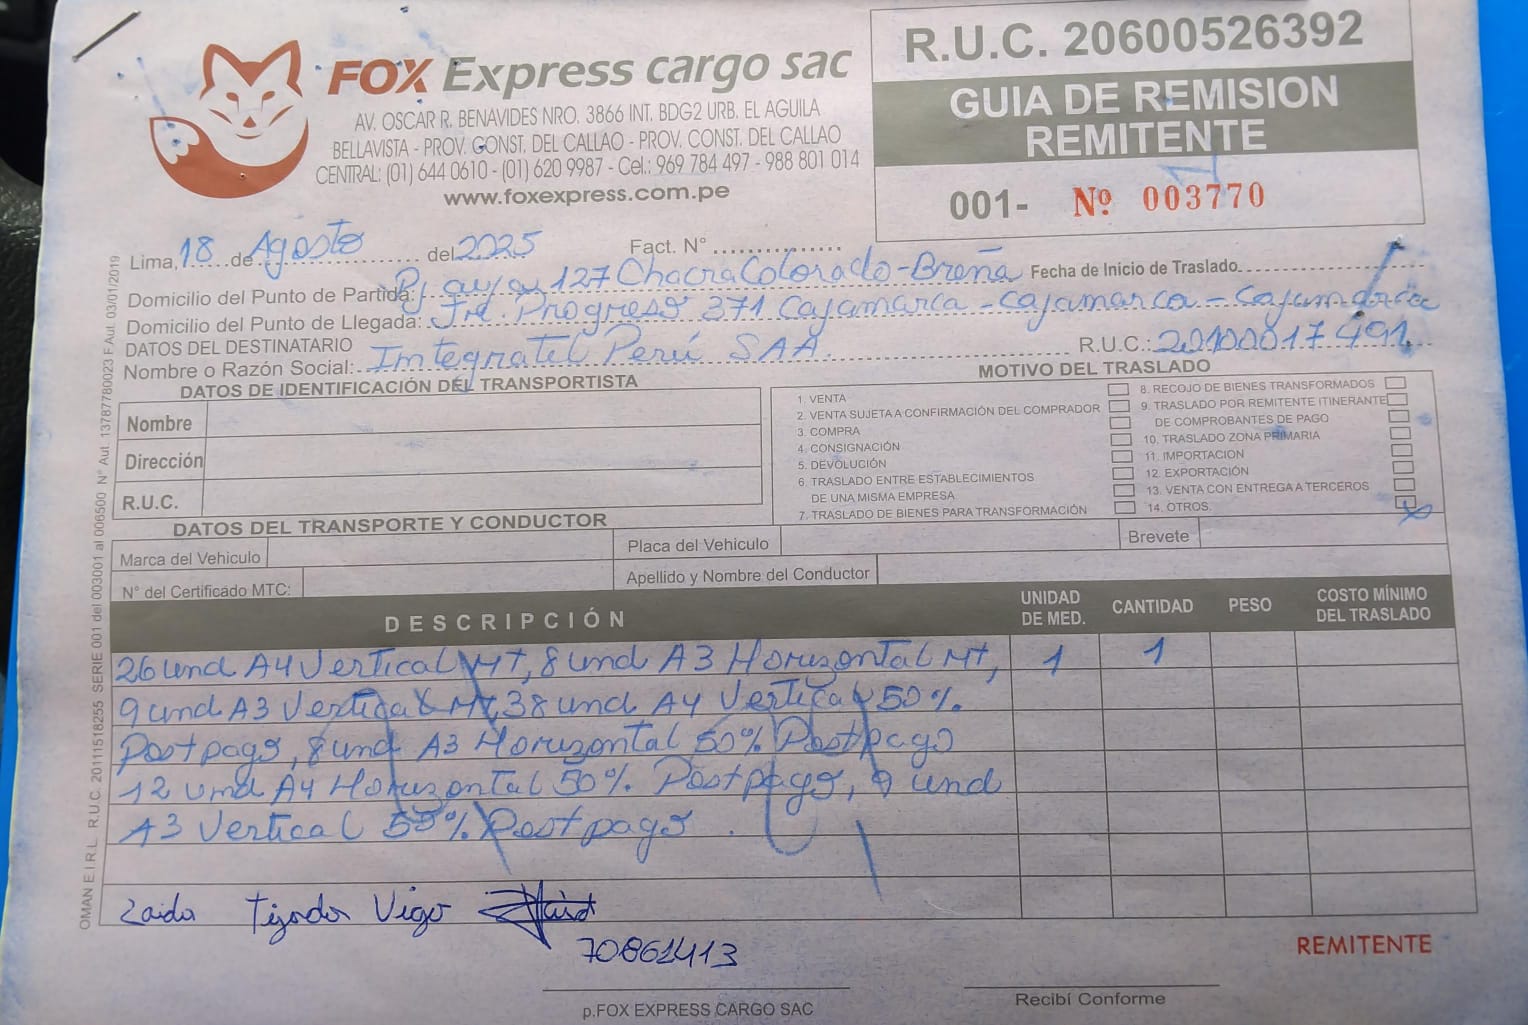 FOX Express cargo sac
AV. OSCAR R. BENAVIDES NRO. 3866 INT. BDG2 URB. EL AGUILA
BELLAVISTA - PROV. CONST. DEL CALLAO - PROV. CONST. DEL CALLAO
CENTRAL: (01) 644 0610 - (01) 620 9987 - Cel.: 969 784 497 - 988 801 014
www.foxexpress.com.pe
R.U.C. 20600526392
GUIA DE REMISION
REMITENTE
001- Nº 003770
Lima, 18 de Agosto del 2025 Fact. N°
Domicilio del Punto de Partida: 127 Chacra Colorado - Breña Fecha de Inicio de Traslado
Domicilio del Punto de Llegada: Jr. Progreso 371 Cajamarca - Cajamarca - Cajamarca
DATOS DEL DESTINATARIO
Nombre o Razón Social: Integratel Perú SAA. R.U.C.: 20100017491
DATOS DE IDENTIFICACIÓN DEL TRANSPORTISTA
Nombre
Dirección
R.U.C.
MOTIVO DEL TRASLADO
1. VENTA
2. VENTA SUJETA A CONFIRMACIÓN DEL COMPRADOR
3. COMPRA
4. CONSIGNACIÓN
5. DEVOLUCIÓN
6. TRASLADO ENTRE ESTABLECIMIENTOS
DE UNA MISMA EMPRESA
7. TRASLADO DE BIENES PARA TRANSFORMACIÓN
8. RECOJO DE BIENES TRANSFORMADOS
9. TRASLADO POR REMITENTE ITINERANTE
DE COMPROBANTES DE PAGO
10. TRASLADO ZONA PRIMARIA
11. IMPORTACION
12. EXPORTACIÓN
13. VENTA CON ENTREGA A TERCEROS
14. OTROS. X
DATOS DEL TRANSPORTE Y CONDUCTOR
Marca del Vehiculo Placa del Vehículo Brevete
N° del Certificado MTC: Apellido y Nombre del Conductor
DESCRIPCIÓN UNIDAD DE MED. CANTIDAD PESO COSTO MÍNIMO DEL TRASLADO
26 und A4 Vertical Mt, 8 und A3 Horizontal Mt, 1 1
9 und A3 Vertical Mt, 38 und A4 Vertical 50%
Postpago, 8 und A3 Horizontal 50% Postpago
12 und A4 Horizontal 50% Postpago, 9 und
A3 Vertical 50% Postpago.
Zaida Tejada Vigo
70861413
REMITENTE
p.FOX EXPRESS CARGO SAC
Recibí Conforme
OMAN E.I.R.L. R.U.C. 20111518255 SERIE 001 del 003001 al 006500 N° Aut. 13787780023 F.Aut. 03/01/2019